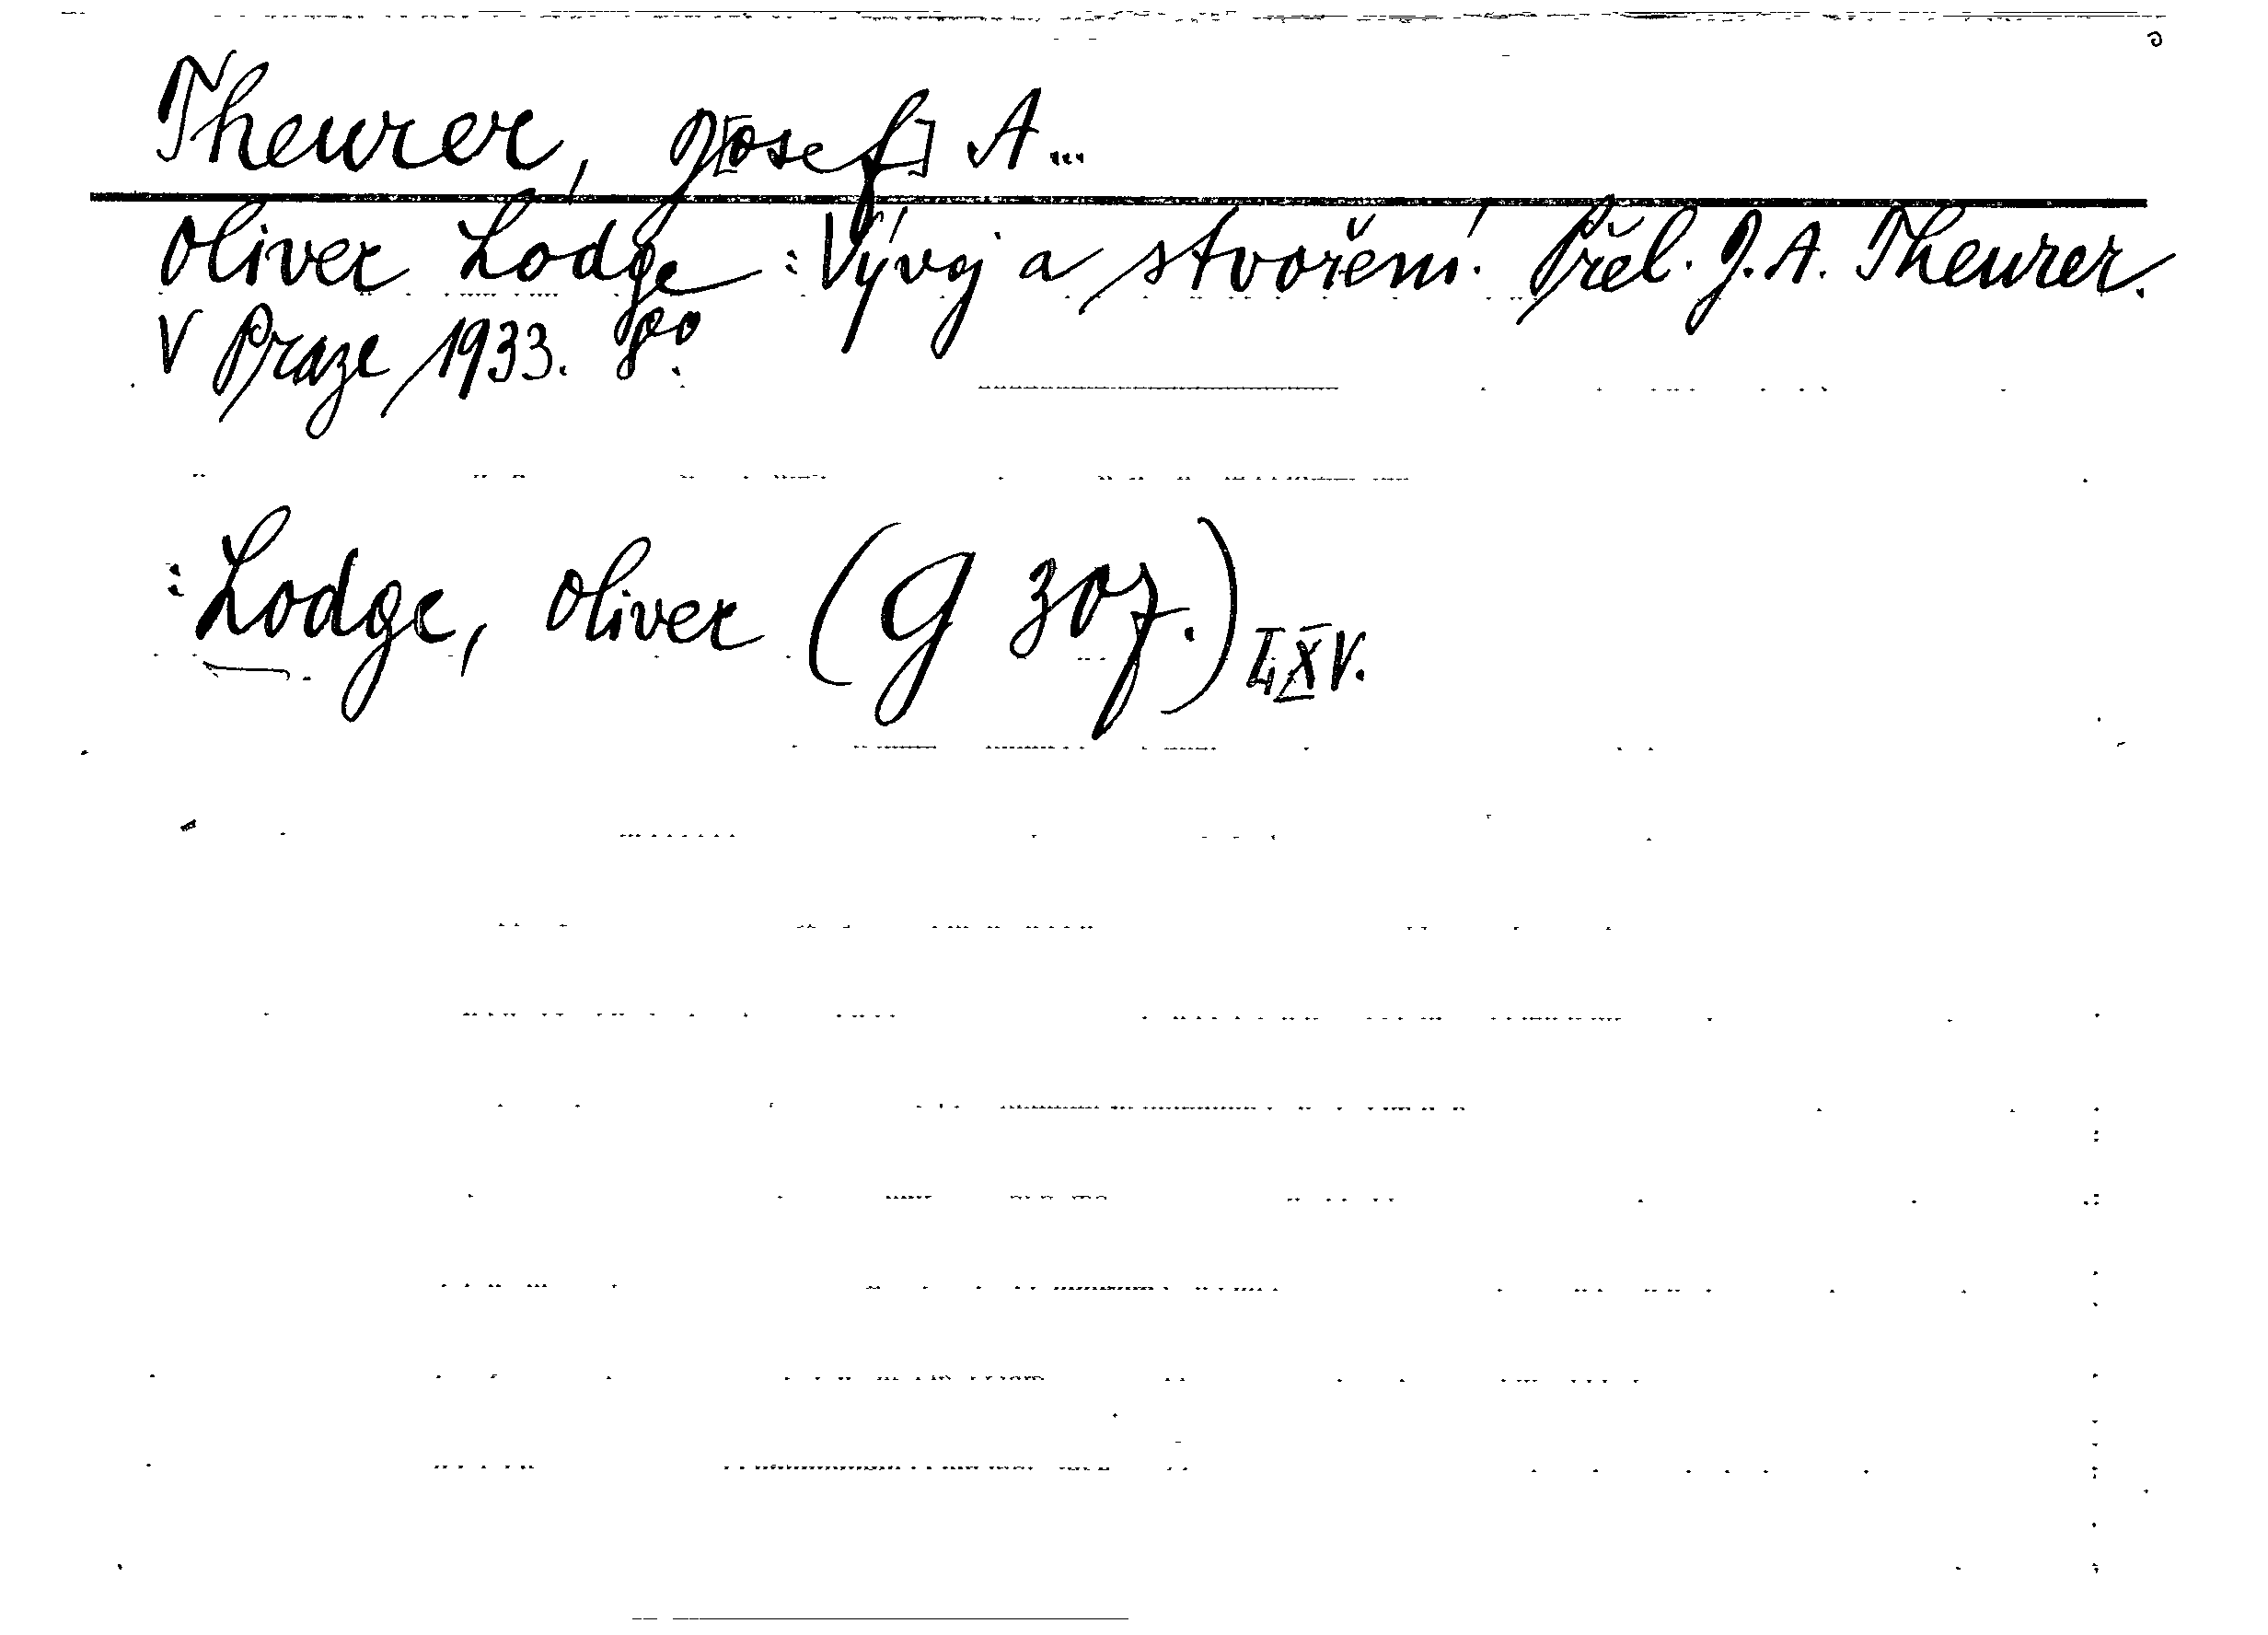 Theurer, J[osef] A...
Oliver Lodge: Vývoj a stvoření. Přel. J. A. Theurer.
V Praze 1933. 8°.
: Lodge, Oliver (G 307.)